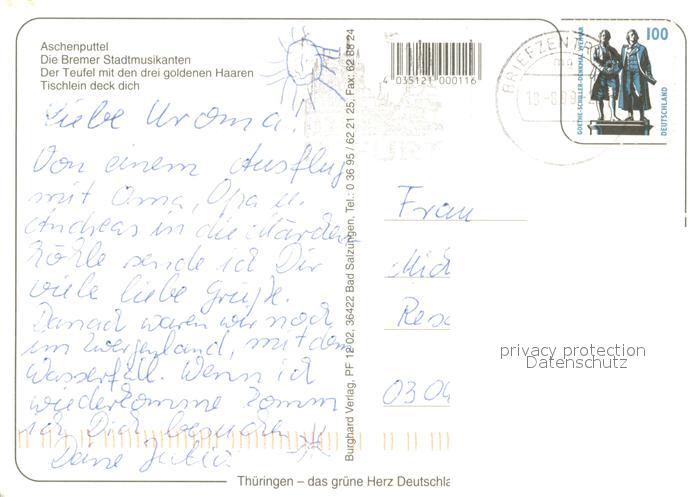 Aschenputtel
Die Bremer Stadtmusikanten
Der Teufel mit den drei goldenen Haaren
Tischlein deck dich
Liebe Uroma!
Von einem Ausflug
mit Oma, Opa u.
Andreas in die Märchen
höhle sende ich Dir
viele liebe Grüße.
Danach waren wir noch
im Zwergenland, mit dem
Wasserfall. Wenn ich
wiederkomme komm
ich Dich besuchen
Burghard Verlag, PF 12 02, 36422 Bad Salzungen, Tel.: 0 36 95 / 62 21 25, Fax: 62 88 24
4 035121 000116
BRIEFZENTR
100
GOETHE-SCHILLER-DENKMAL WEIMAR
DEUTSCHLAND
Frau
03 04
privacy protection
Datenschutz
Thüringen – das grüne Herz Deutschla